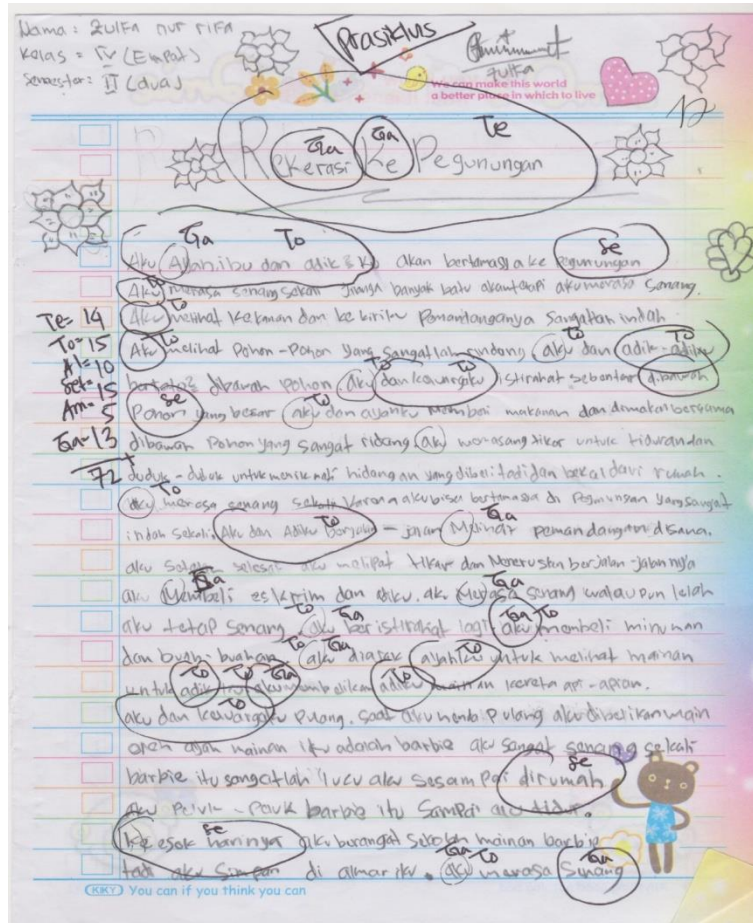 Nama : zulfa nur rifa
Kelas = IV (Empat)
semester : II (dua)
Prasiklus
zulfa
We can make this world
a better place in which to live
12
Ga Ga Te
Rekerasi Ke Pegunungan
Ga To se
Aku Ayah, ibu dan adik ku akan bertamasya ke Pegunungan
To
Aku merasa senang sekali banyak batu akan tetapi aku merasa senang.
Te = 14
To
Aku melihat kekanan dan ke kiriku Pemandanganya Sangatlah indah
To = 15
To To To
Aku melihat Pohon-Pohon yang sangatlah rindang aku dan adik-adiku
Al = 10
To To
dibawah Pohon aku dan keluargaku istirahat sebentar dibawah
Set = 15
se To
Pohon yang besar aku dan ayahku Membeli makanan dan dimakan bersama
Am = 5
Ga = 13
dibawah Pohon yang sangat ridang aku memasang tikar untuk tiduran dan
72
duduk - duduk untuk menikmati hidangan yang dibeli tadi dan bekal dari rumah.
To
aku merasa senang sekali karena aku bisa bertamasya di Pegunungan yang sangat
To Ga
indah sekali. Aku dan Adiku berjalan - jalan Melihat pemandangan disana.
aku selesai aku melipat tikar dan Meneruskan berjalan-jalannya
Ga Ga
aku Membeli es krim dan adiku. aku Merasa senang walaupun lelah
To Ga Ga To
aku tetap senang. aku beristirahat lagi. aku membeli minuman
To Ga To
dan buah-buahan. aku diajak ayahku untuk melihat mainan
To To Ga To
untuk adikku aku membelikan adiku mainan kereta api-apian.
To
aku dan keluargaku Pulang. saat aku Pulang aku dibelikan
oleh ayah mainan itu adalah barbie aku sangat senang sekali
se
barbie itu sangatlah lucu aku sesampai dirumah
aku Peluk - Peluk barbie itu Sampai aku tidur.
se
Ke esok harinya aku berangat sekolah mainan barbie
Ga To Ga
tadi aku Simpan di almariku. aku merasa Senang
KIKY You can if you think you can